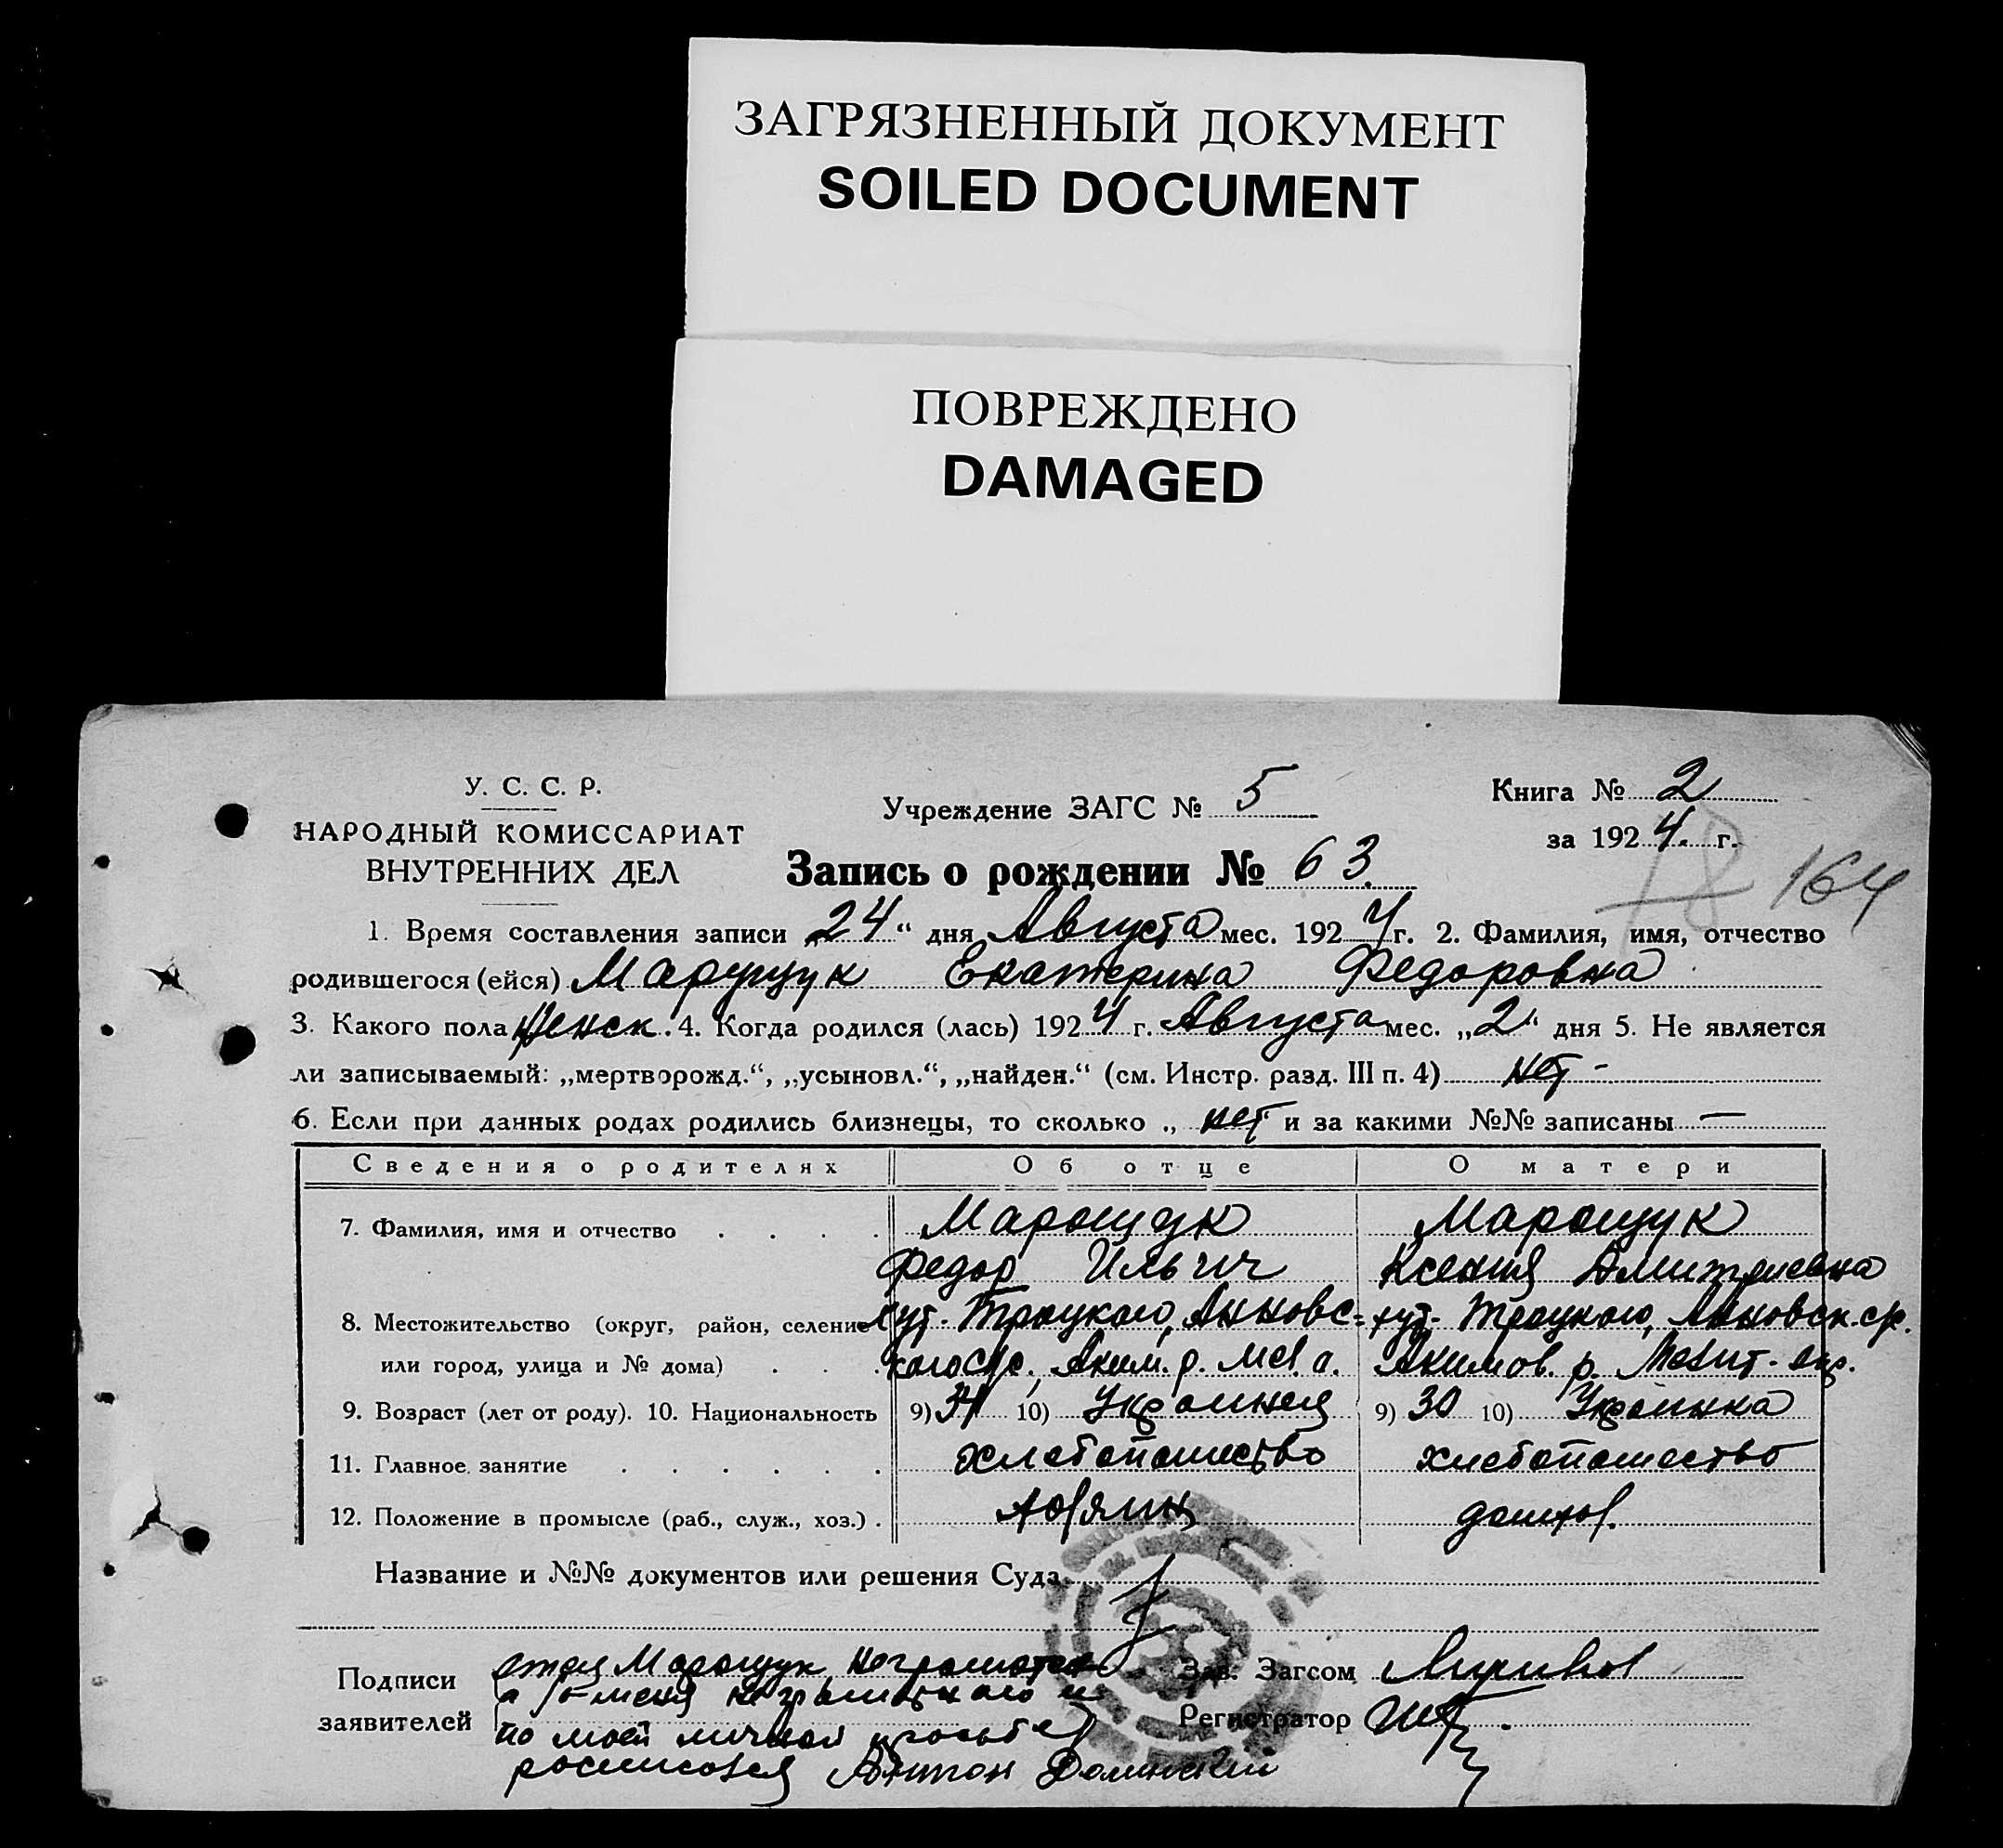 ЗАГРЯЗНЕННЫЙ ДОКУМЕНТ
SOILED DOCUMENT
ПОВРЕЖДЕНО
DAMAGED
У. С. С. Р.
НАРОДНЫЙ КОМИССАРИАТ
ВНУТРЕННИХ ДЕЛ
Учреждение ЗАГС № 5
Книга № 2
за 1924 г.
Запись о рождении № 63
18 164
1. Время составления записи „24“ дня Августа мес. 1924 г. 2. Фамилия, имя, отчество
родившегося (ейся) Марущук Екатерина Федоровна
3. Какого пола женск. 4. Когда родился (лась) 1924 г. Августа мес. „2“ дня 5. Не является
ли записываемый: „мертворожд.“, „усыновл.“, „найден.“ (см. Инстр. разд. III п. 4) нет -
6. Если при данных родах родились близнецы, то сколько „ нет и за какими №№ записаны —
Сведения о родителях Об отце О матери
7. Фамилия, имя и отчество . . . . Марощук Марощук
Федор Ильич Ксения Дмитриевна
8. Местожительство (округ, район, селение хут. Троцкого, Анновс- хут. Троцкого, Анновск. с/р.
или город, улица и № дома) . . . кого с/р. Аким. р. Мел. о. Акимов. р. Мелит. окр.
9. Возраст (лет от роду). 10. Национальность 9) 31 10) Украинец 9) 30 10) Украинка
11. Главное занятие . . . . . . хлебопашество хлебопашество
12. Положение в промысле (раб., служ., хоз.) . хозяин домхоз.
Название и №№ документов или решения Суда
Подписи отец Марощук неграмотен Зав. Загсом
а за меня неграмотного и
заявителей по моей личной просьбе Регистратор
росписался Антон Долинский